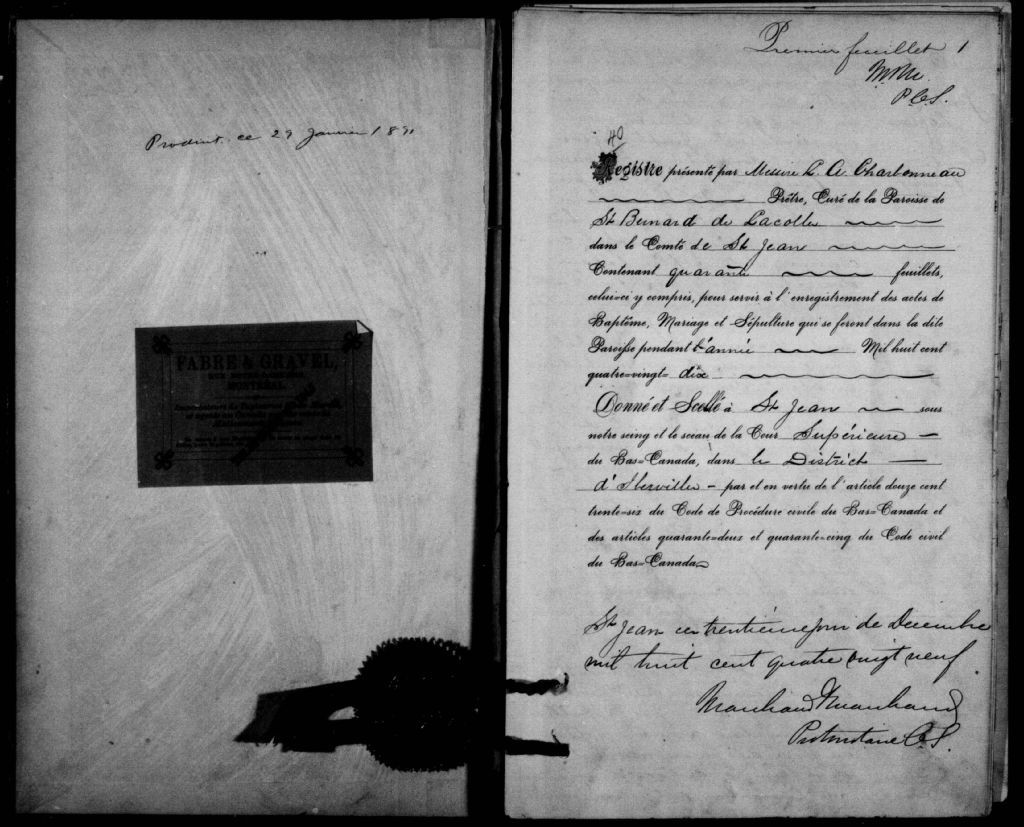 Produit ce 29 Janvier 1891
FABRE & GRAVEL,
MONTRÉAL.
Premier feuillet 1
P.C.S.
40
Registre présenté par Messire L. A. Charbonneau
Prêtre, Curé de la Paroisse de
St Bernard de Lacolle
dans le Comté de St Jean
Contenant quarante feuillets,
celui-ci y compris, pour servir à l'enregistrement des actes de
Baptême, Mariage et Sépulture qui se feront dans la dite
Paroisse pendant l'année Mil huit cent
quatre-vingt-dix
Donné et Scellé à St Jean sous
notre seing et le sceau de la Cour Supérieure
du Bas-Canada, dans le District
d'Iberville - par et en vertu de l'article douze cent
trente-six du Code de Procédure civile du Bas-Canada et
des articles quarante-deux et quarante-cinq du Code civil
du Bas-Canada
St Jean ce trentième jour de Decembre
mil huit cent quatre vingt neuf
Marchand & Marchand
Protonotaire C.S.